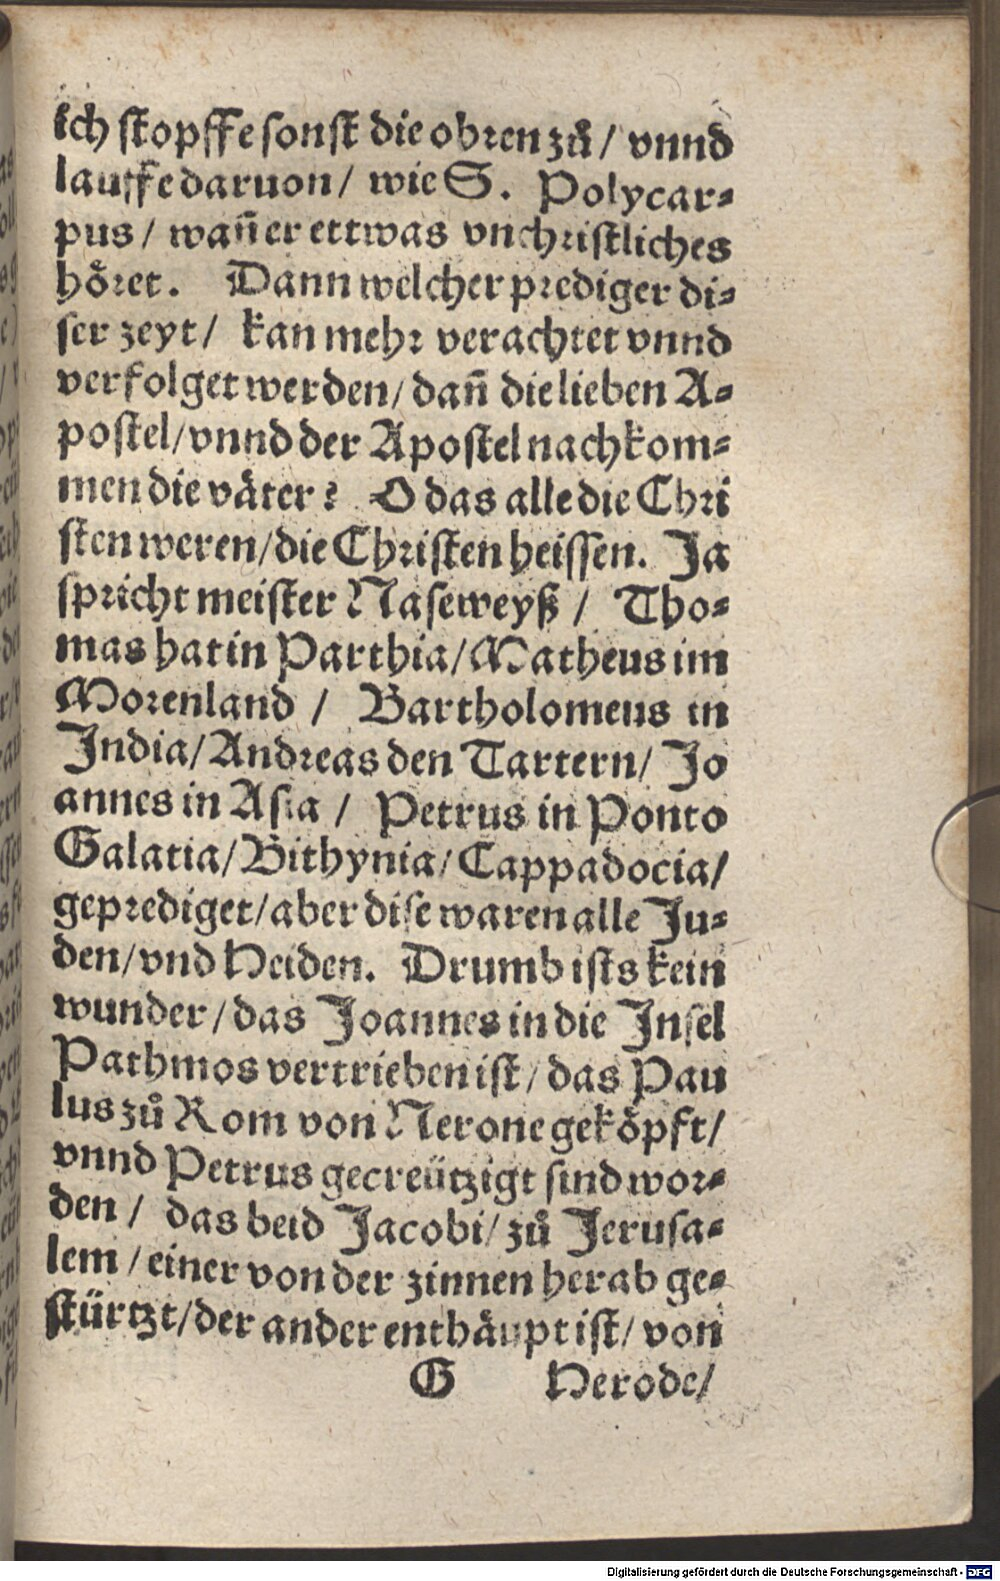 ich stopffe sonst die ohren zů / vnnd
lauffe daruon / wie S. Polycar⸗
pus / wañ er ettwas vnchristliches
hoͤret. Dann welcher prediger di⸗
ser zeyt / kan mehr verachtet vnnd
verfolget werden / dañ die lieben A⸗
postel / vnnd der Apostel nachkom⸗
men die vaͤter? O das alle die Chri
sten weren / die Christen heissen. Ja
spricht meister Naseweyß / Tho⸗
mas hat in Parthia / Matheus im
Morenland / Bartholomeus in
India / Andreas den Tartern / Jo
annes in Asia / Petrus in Ponto
Galatia / Bithynia / Cappadocia /
geprediget / aber dise waren alle Ju⸗
den / vnd Heiden. Drumb ists kein
wunder / das Joannes in die Insel
Pathmos vertrieben ist / das Pau
lus zů Rom von Nerone gekoͤpft /
vnnd Petrus gecreützigt sind wor⸗
den / das beid Jacobi / zů Jerusa⸗
lem / einer von der zinnen herab ge⸗
stürtzt / der ander enthaͤupt ist / von
G Herode /
Digitalisierung gefördert durch die Deutsche Forschungsgemeinschaft - DFG